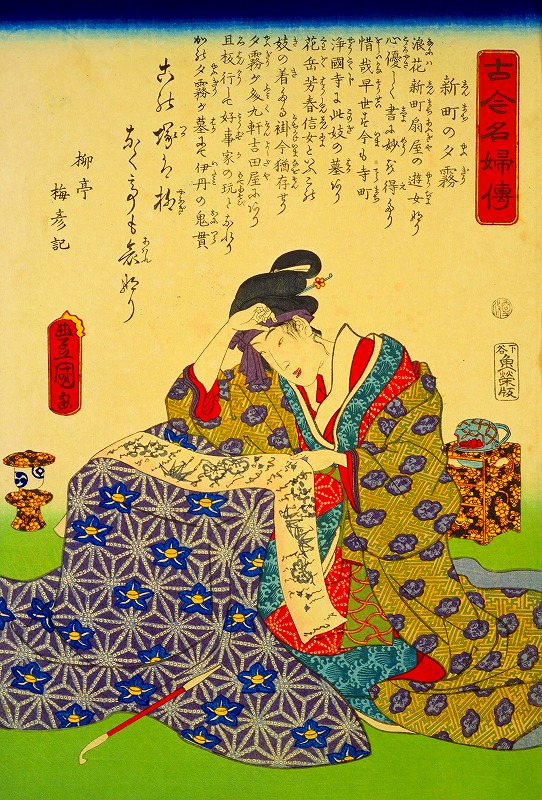 古今名婦傳
新町の夕霧
浪花新町扇屋の遊女なり
心優しく書に妙を得たり
惜哉早世す今も寺町
浄國寺に此妓の墓あり
花岳芳春信女といふこの
妓の着たる裲今猶存せり
夕霧が文九軒吉田屋にあり
且板行して好事家の玩となれり
かの夕霧が墓にて伊丹の鬼貫
此塚は柳
なくても哀なり
柳亭
梅彦記
豊國画
下谷
魚榮版